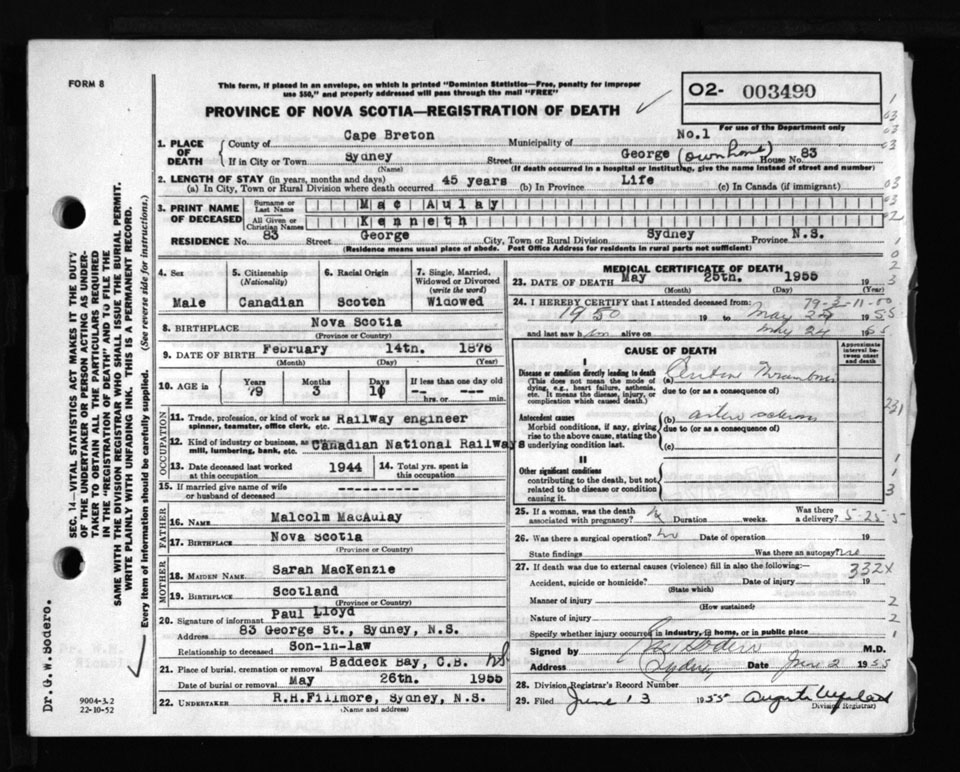 FORM 8
This form, if placed in an envelope, on which is printed "Dominion Statistics—Free, penalty for improper
use $50," and properly addressed will pass through the mail "FREE"
PROVINCE OF NOVA SCOTIA—REGISTRATION OF DEATH
O2- 003490
For use of the Department only
1. PLACE OF DEATH County of Cape Breton Municipality of No.1
If in City or Town Sydney Street George (own home) House No. 83
(Name) (If death occurred in a hospital or institution, give the name instead of street and number)
2. LENGTH OF STAY (in years, months and days)
(a) In City, Town or Rural Division where death occurred 45 years (b) In Province Life (c) In Canada (if immigrant)
3. PRINT NAME OF DECEASED Surname or Last Name Mac Aulay
All Given or Christian Names Kenneth
RESIDENCE No. 83 Street George City, Town or Rural Division Sydney Province N.S.
(Residence means usual place of abode. Post Office Address for residents in rural parts not sufficient)
4. Sex Male
5. Citizenship (Nationality) Canadian
6. Racial Origin Scotch
7. Single, Married, Widowed or Divorced (write the word) Widowed
8. BIRTHPLACE Nova Scotia
(Province or Country)
9. DATE OF BIRTH February 14th. 1876
(Month) (Day) (Year)
10. AGE in Years 79 Months 3 Days If less than one day old -- hrs. or -- min.
OCCUPATION
11. Trade, profession, or kind of work as spinner, teamster, office clerk, etc. Railway engineer
12. Kind of industry or business, as mill, lumbering, bank, etc. Canadian National Railways
13. Date deceased last worked at this occupation 1944
14. Total yrs. spent in this occupation
15. If married give name of wife or husband of deceased ----------
FATHER
16. NAME Malcolm MacAulay
17. BIRTHPLACE Nova Scotia
(Province or Country)
MOTHER
18. MAIDEN NAME Sarah MacKenzie
19. BIRTHPLACE Scotland
(Province or Country)
20. Signature of informant Paul Lloyd
Address 83 George St., Sydney, N.S.
Relationship to deceased Son-in-law
21. Place of burial, cremation or removal Baddeck Bay, C.B. NS
Date of burial or removal May 26th. 1955
22. UNDERTAKER R.H.Fillmore, Sydney, N.S.
(Name and address)
MEDICAL CERTIFICATE OF DEATH
23. DATE OF DEATH May 25th. 1955
(Month) (Day) (Year)
79-3-11-00
24. I HEREBY CERTIFY that I attended deceased from
1950 19 to May 1955
and last saw h im alive on May 24 1955
CAUSE OF DEATH
Approximate interval between onset and death
I
Disease or condition directly leading to death
(This does not mean the mode of dying, e.g., heart failure, asthenia, etc. It means the disease, injury, or complication which caused death.)
(a)
due to (or as a consequence of)
Antecedent causes
Morbid conditions, if any, giving rise to the above cause, stating the underlying condition last.
(b)
due to (or as a consequence of)
(c)
II
Other significant conditions
contributing to the death, but not related to the disease or condition causing it.
25. If a woman, was the death associated with pregnancy? Duration weeks. Was there a delivery? 5-25-5
26. Was there a surgical operation? no Date of operation 19
State findings Was there an autopsy? no
27. If death was due to external causes (violence) fill in also the following:— 332X
Accident, suicide or homicide? Date of injury 19
(State which)
Manner of injury
(How sustained)
Nature of injury
Specify whether injury occurred in industry, in home, or in public place
Signed by M.D.
Address Sydney Date June 2 1955
28. Division Registrar's Record Number
29. Filed June 13 1955
Division Registrar)
SEC. 14—VITAL STATISTICS ACT MAKES IT THE DUTY
OF THE UNDERTAKER OR PERSON ACTING AS UNDER-
TAKER TO OBTAIN ALL THE PARTICULARS REQUIRED
IN THE "REGISTRATION OF DEATH" AND TO FILE THE
SAME WITH THE DIVISION REGISTRAR WHO SHALL ISSUE THE BURIAL PERMIT.
WRITE PLAINLY WITH UNFADING INK. THIS IS A PERMANENT RECORD.
Every item of information should be carefully supplied. (See reverse side for instructions.)
Dr. G. W. Sodero.
9004-3.2
22-10-52